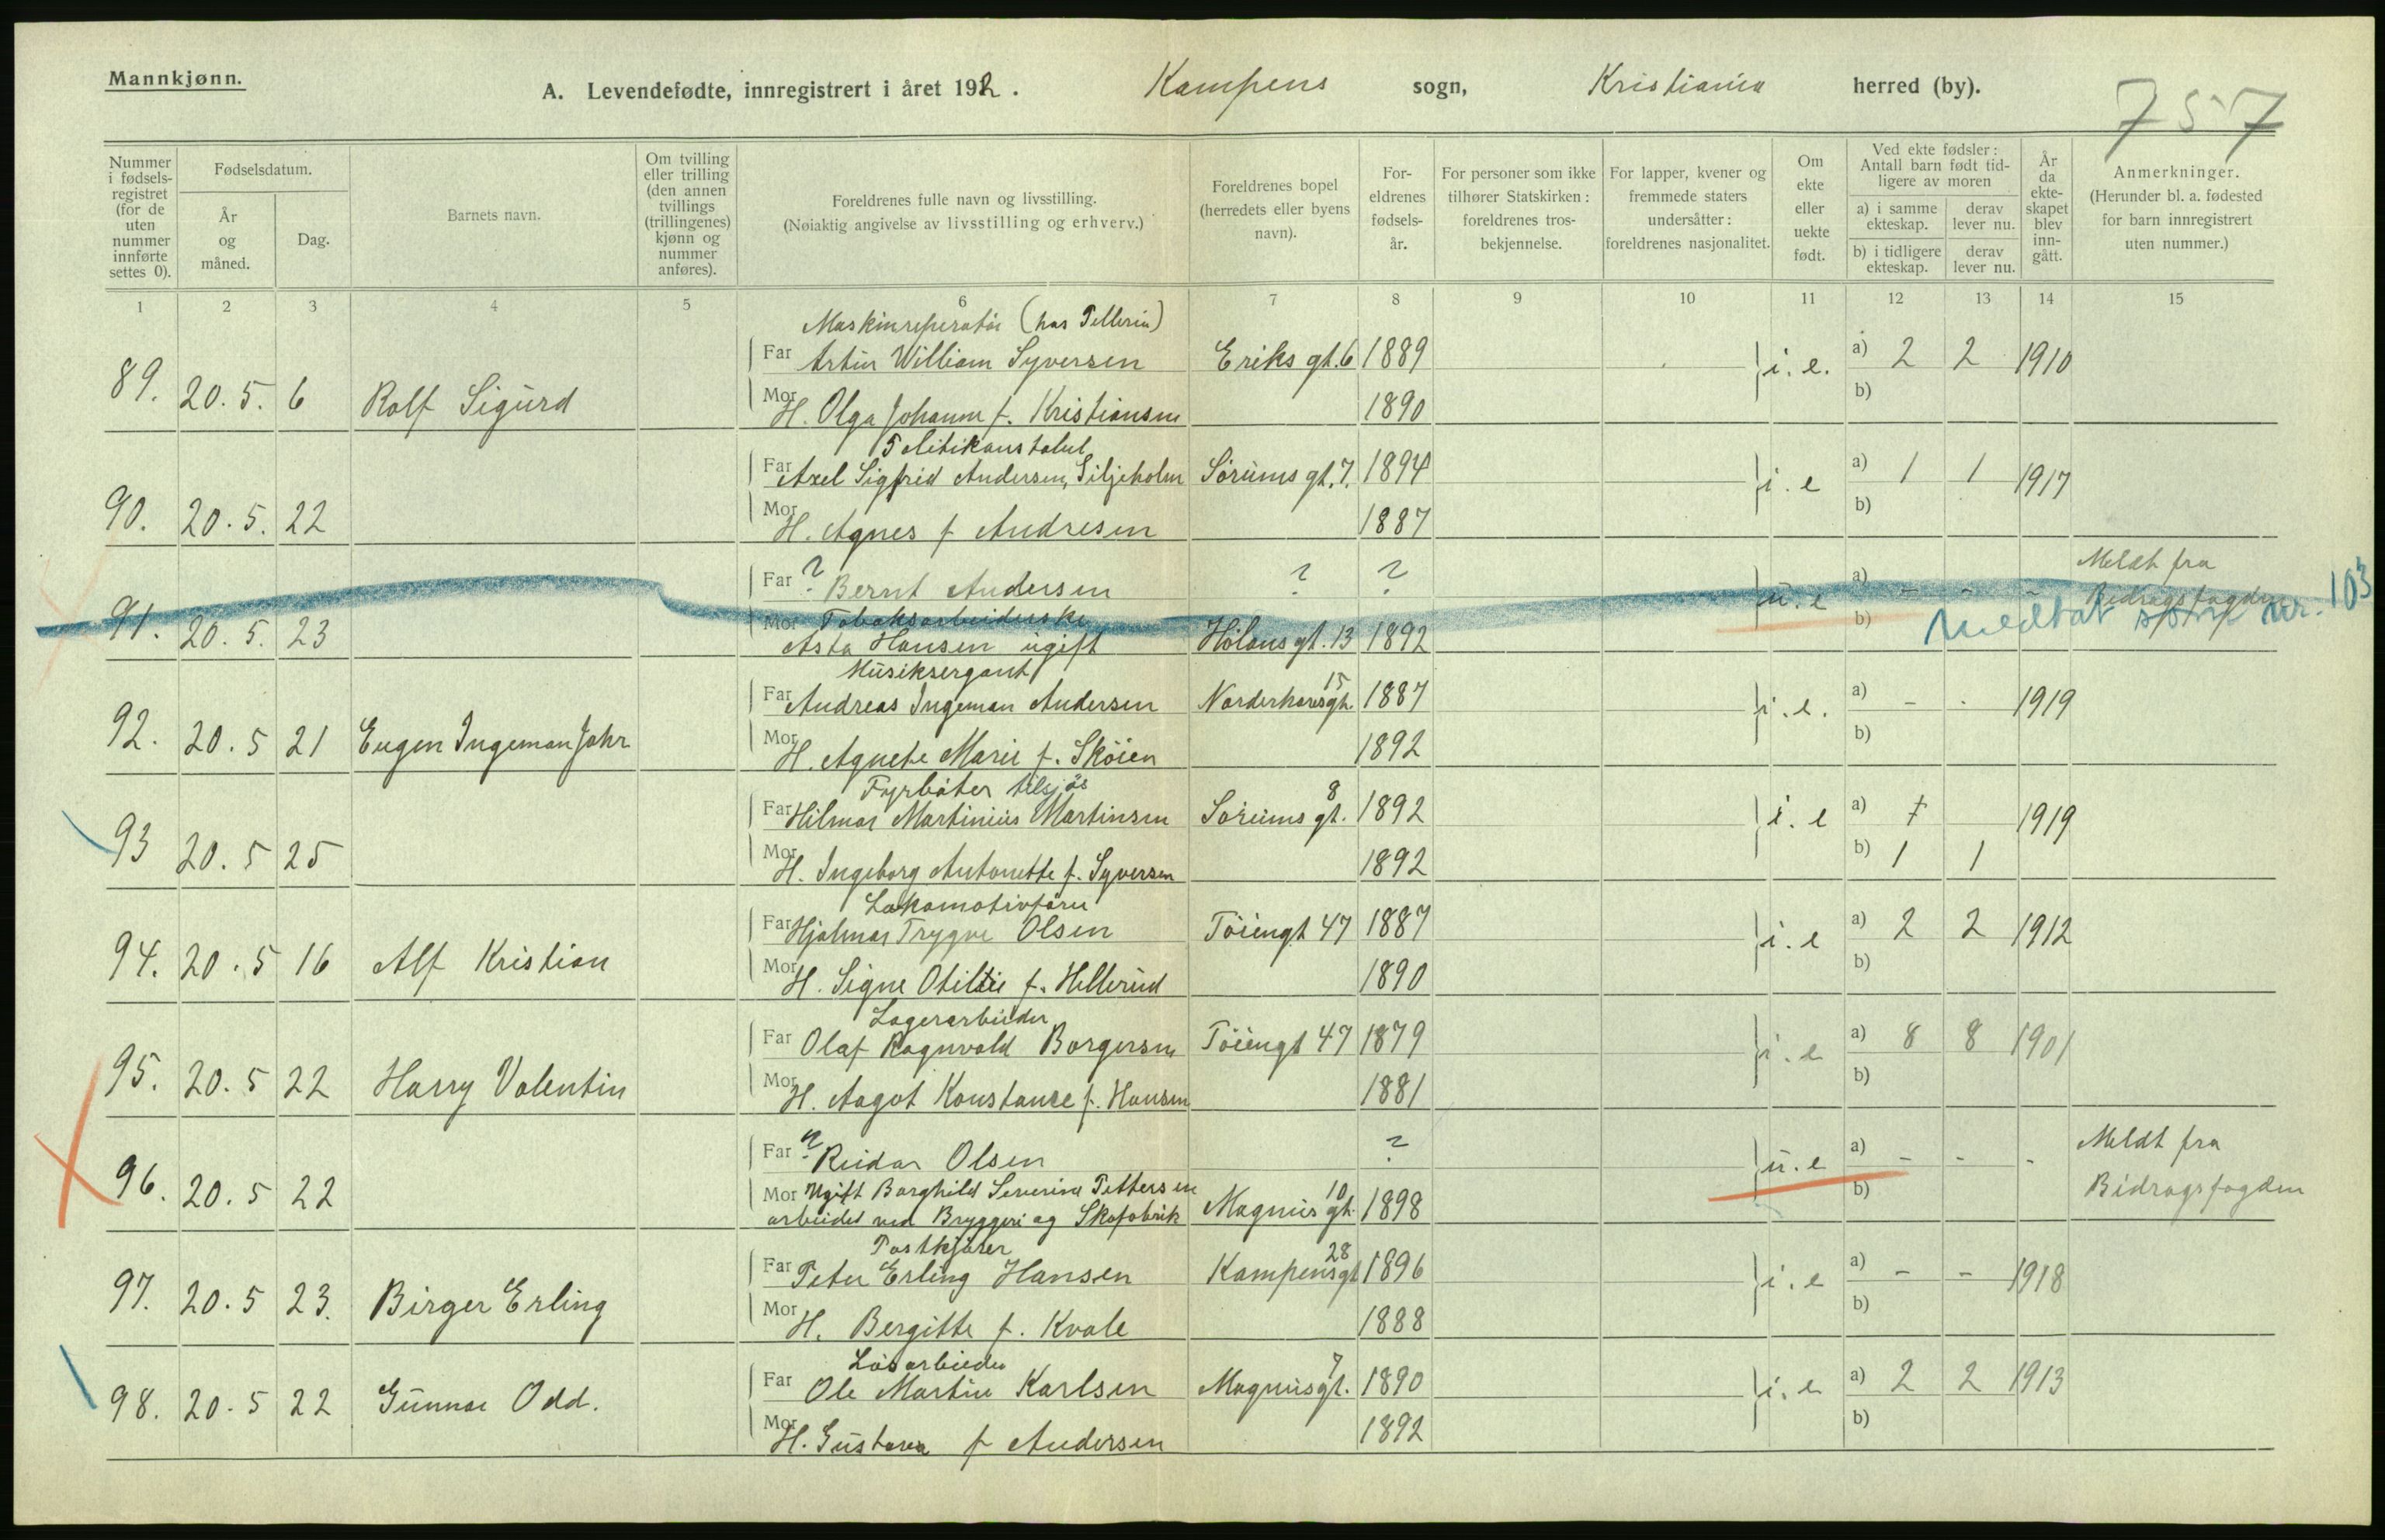 Mannkjønn.
A. Levendefødte, innregistrert i året 192. Kampens sogn, Kristiania herred (by).
757
Nummer i fødselsregistret (for de uten nummer innførte settes 0).
Fødselsdatum.
År og måned.
Dag.
Barnets navn.
Om tvilling eller trilling (den annen tvillings (trillingenes) kjønn og nummer anføres).
Foreldrenes fulle navn og livsstilling.
(Nøiaktig angivelse av livsstilling og erhverv.)
Foreldrenes bopel (herredets eller byens navn).
Foreldrenes fødselsår.
For personer som ikke tilhører Statskirken: foreldrenes trosbekjennelse.
For lapper, kvener og fremmede staters undersåtter: foreldrenes nasjonalitet.
Om ekte eller uekte født.
Ved ekte fødsler: Antall barn født tidligere av moren
a) i samme ekteskap.
derav lever nu.
b) i tidligere ekteskap.
derav lever nu.
År da ekteskapet blev inngått.
Anmerkninger.
(Herunder bl. a. fødested for barn innregistrert uten nummer.)
1 2 3 4 5 6 7 8 9 10 11 12 13 14 15
Maskinreperatör (hos Pellerin)
Far Artur William Syversen Eriks gt. 6 1889 i. e. a) 2 2 1910
89. 20. 5. 6 Rolf Sigurd
Mor H. Olga Johanne f. Kristiansen 1890 b)
Politikonstabel
Far Axel Sigfrid Andersen, Siljeholm Sörums gt. 7. 1894 i. e a) 1 1 1917
90. 20. 5. 22
Mor H. Agnes f Andresen 1887 b)
Far ? Bernt Andersen ? ? u. e a) - - - Meldt fra Bidragsfogden
91. 20. 5. 23
Mor Tobaksarbeiderske b) Medtat som nr. 103
Asta Hansen ugift Hölans gt. 13 1892
Musiksergant
Far Andreas Ingeman Andersen Norderhovsgt. 15 1887 i. e. a) - - 1919
92. 20. 5 21 Eugen Ingeman Johr
Mor H. Agnete Marie f. Sköien 1892 b)
Fyrböter tilsjös
Far Hilmar Martinius Martinsen Sörums gt. 8 1892 i. e a) 1919
93 20. 5 25
Mor H. Ingeborg Antonette f. Syversen 1892 b) 1 1
Lokomotivförer
Far Hjalmar Trygve Olsen Töiengt 47 1887 i. e a) 2 2 1912
94. 20. 5 16 Alf Kristian
Mor H. Signe Otilie f. Hellerud 1890 b)
Lagerarbeider
Far Olaf Ragnvald Borgersen Töiengt 47 1879 i. e a) 8 8 1901
95. 20. 5 22 Harry Valentin
Mor H. Aagot Konstance f. Hansen 1881 b)
Far ? Reidar Olsen ? u. e a) - - - Meldt fra
96. 20. 5 22
Mor Ugift Borghild Severine Pettersen Magnus gt. 10 1898 b) Bidragsfogden
arbeidet ved Bryggeri og Skofabrik
Postkjörer
Far Peter Erling Hansen Kampensgt 28 1896 i. e a) - - 1918
97. 20. 5 23. Birger Erling
Mor H. Bergitte f. Kvale 1888 b)
Lösarbeider
Far Ole Martin Karlsen Magnusgt. 7 1890 i. e a) 2 2 1913
98. 20. 5 22 Gunnar Odd.
Mor H. Gustava f Andersen 1892 b)